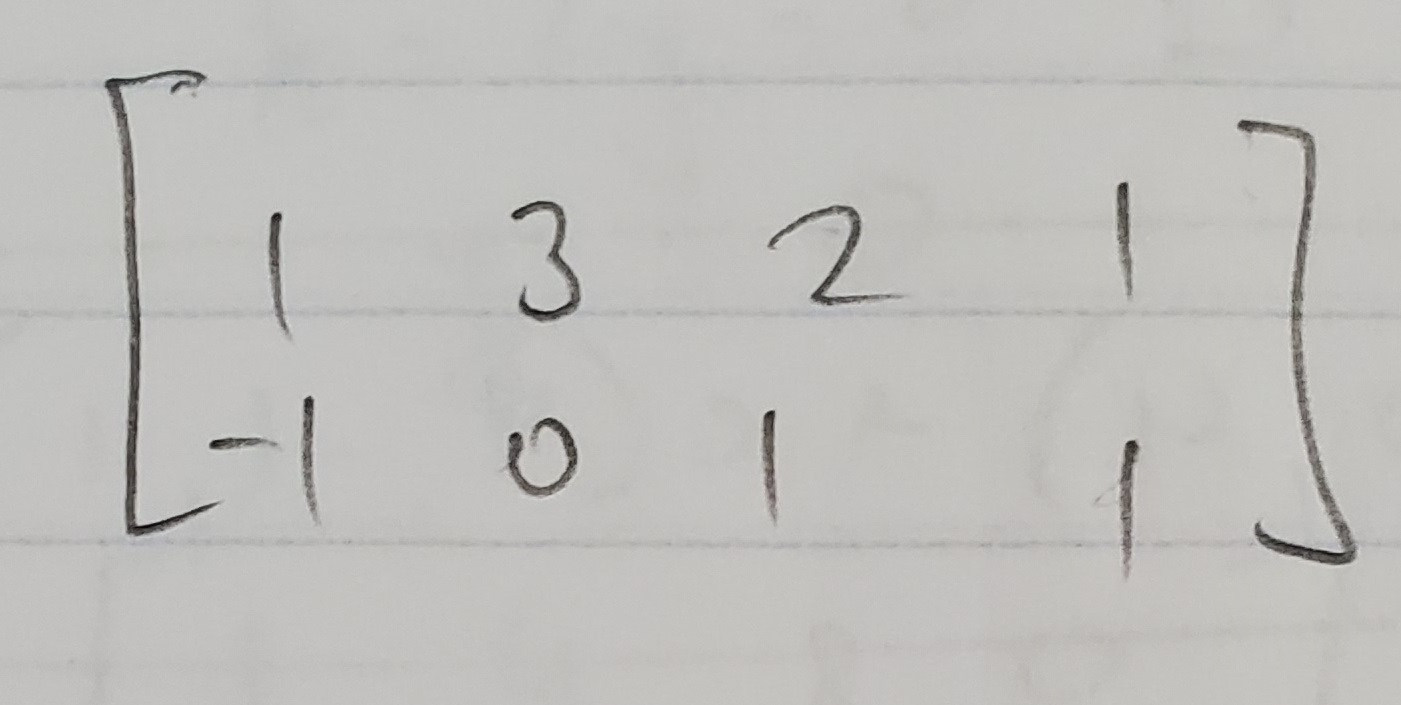 1 3 2 1
-1 0 1 1